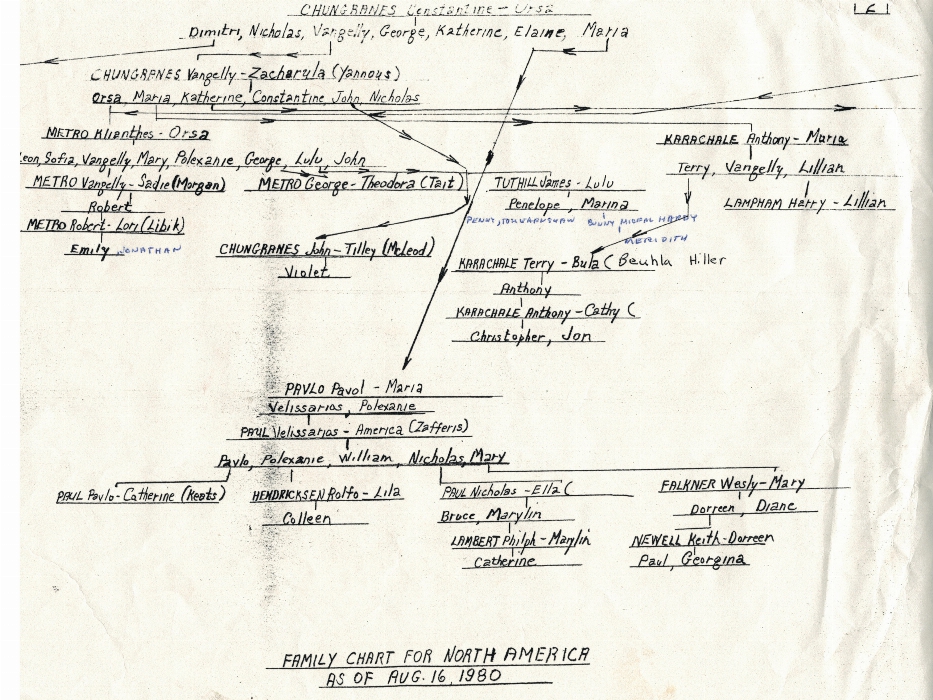 CHUNGRANES Constantine - Orsa
Dimitri, Nicholas, Vangelly, George, Katherine, Elaine, Maria
CHUNGRANES Vangelly - Zacharula (Yannous)
Orsa, Maria, Katherine, Constantine John, Nicholas
METRO Klianthes - Orsa
KARACHALE Anthony - Maria
Leon, Sofia, Vangelly, Mary, Polexanie George, Lulu, John
Terry, Vangelly, Lillian
METRO Vangelly - Sadie (Morgan)
METRO George - Theodora (Tait)
TUTHILL James - Lulu
LAMPHAM Harry - Lillian
Robert
Penelope, Marina
METRO Robert - Lori (Libik)
PENNY,
HARDY
MERIDITH
Emily JONATHAN
CHUNGRANES John - Tilley (McLeod)
Violet
KARACHALE Terry - Bula ( Beuhla Hiller
Anthony
KARACHALE Anthony - Cathy (
Christopher, Jon
PAVLO Pavol - Maria
Velissarios, Polexanie
PAUL Velissarios - America (Zafferis)
Pavlo, Polexanie, William, Nicholas, Mary
PAUL Pavlo - Catherine (Keats)
HENDRICKSEN Rolfo - Lila
PAUL Nicholas - Ella (
FALKNER Wesly - Mary
Colleen
Bruce, Marylin
Dorreen, Diane
LAMBERT Philph - Marylin
NEWELL Keith - Dorreen
Catherine
Paul, Georgina
FAMILY CHART FOR NORTH AMERICA
AS OF AUG. 16, 1980